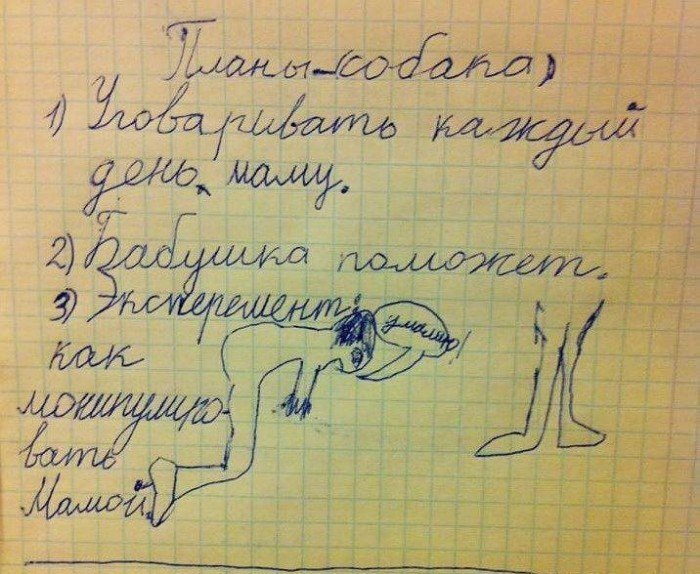 Планы-собака,
1) Уговаривать каждый
день маму.
2) Бабушка поможет.
3) Эксперемент:
как
монипулиро-
вать
Мамой.
умаляю!